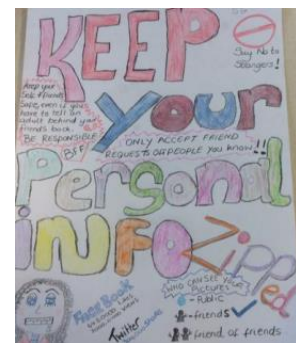 KEEP
Say No to
Strangers!
Keep your
Self & friends
Safe, even if you
have to tell an
adult behind your
friends back.
BE RESPONSIBLE
BFF!
Your
ONLY ACCEPT FRIEND
REQUESTS OFF PEOPLE YOU KNOW!!
Personal
INFO
Zipped
WHO CAN SEE YOUR
PICTURES
- PUBLIC
- friends
- friend of friends
FaceBook
Twitter